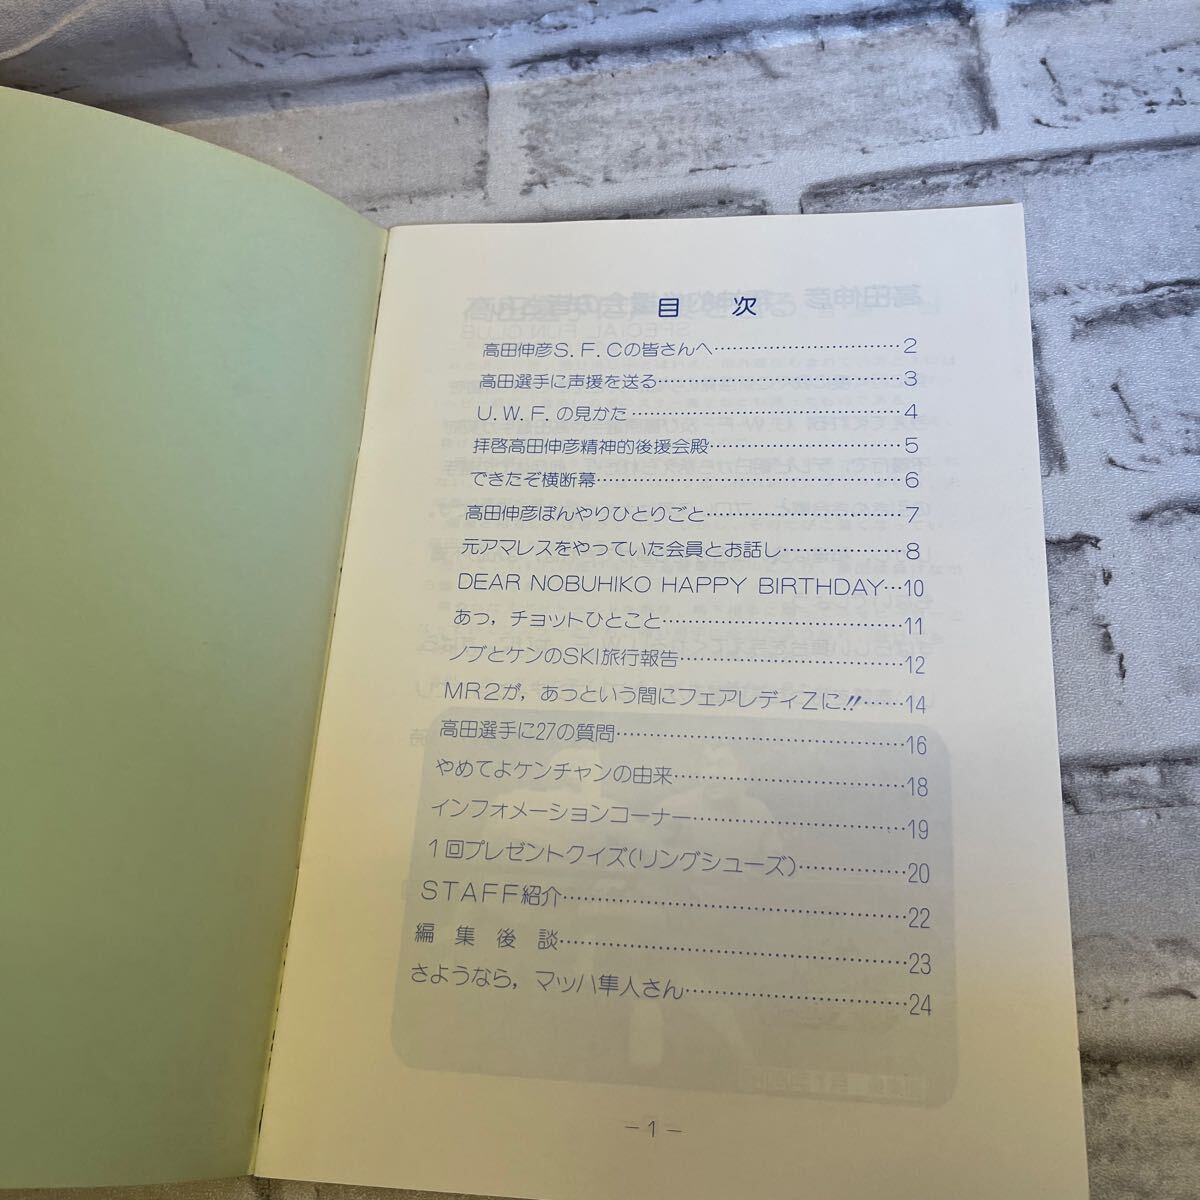 目次
高田伸彦S.F.Cの皆さんへ……………………………2
高田選手に声援を送る……………………………3
U.W.F.の見かた……………………………4
拝啓高田伸彦精神的後援会殿……………………………5
できたぞ横断幕……………………………6
高田伸彦ぼんやりひとりごと……………………………7
元アマレスをやっていた会員とお話し……………8
DEAR NOBUHIKO HAPPY BIRTHDAY…10
あっ，チョットひとこと……………………………11
ノブとケンのSKI旅行報告……………………………12
MR2が，あっという間にフェアレディZに!!……14
高田選手に27の質問……………………………16
やめてよケンチャンの由来……………………………18
インフォメーションコーナー……………………………19
1回プレゼントクイズ(リングシューズ)……………20
STAFF紹介……………………………22
編集後談……………………………23
さようなら，マッハ隼人さん……………………………24
－1－